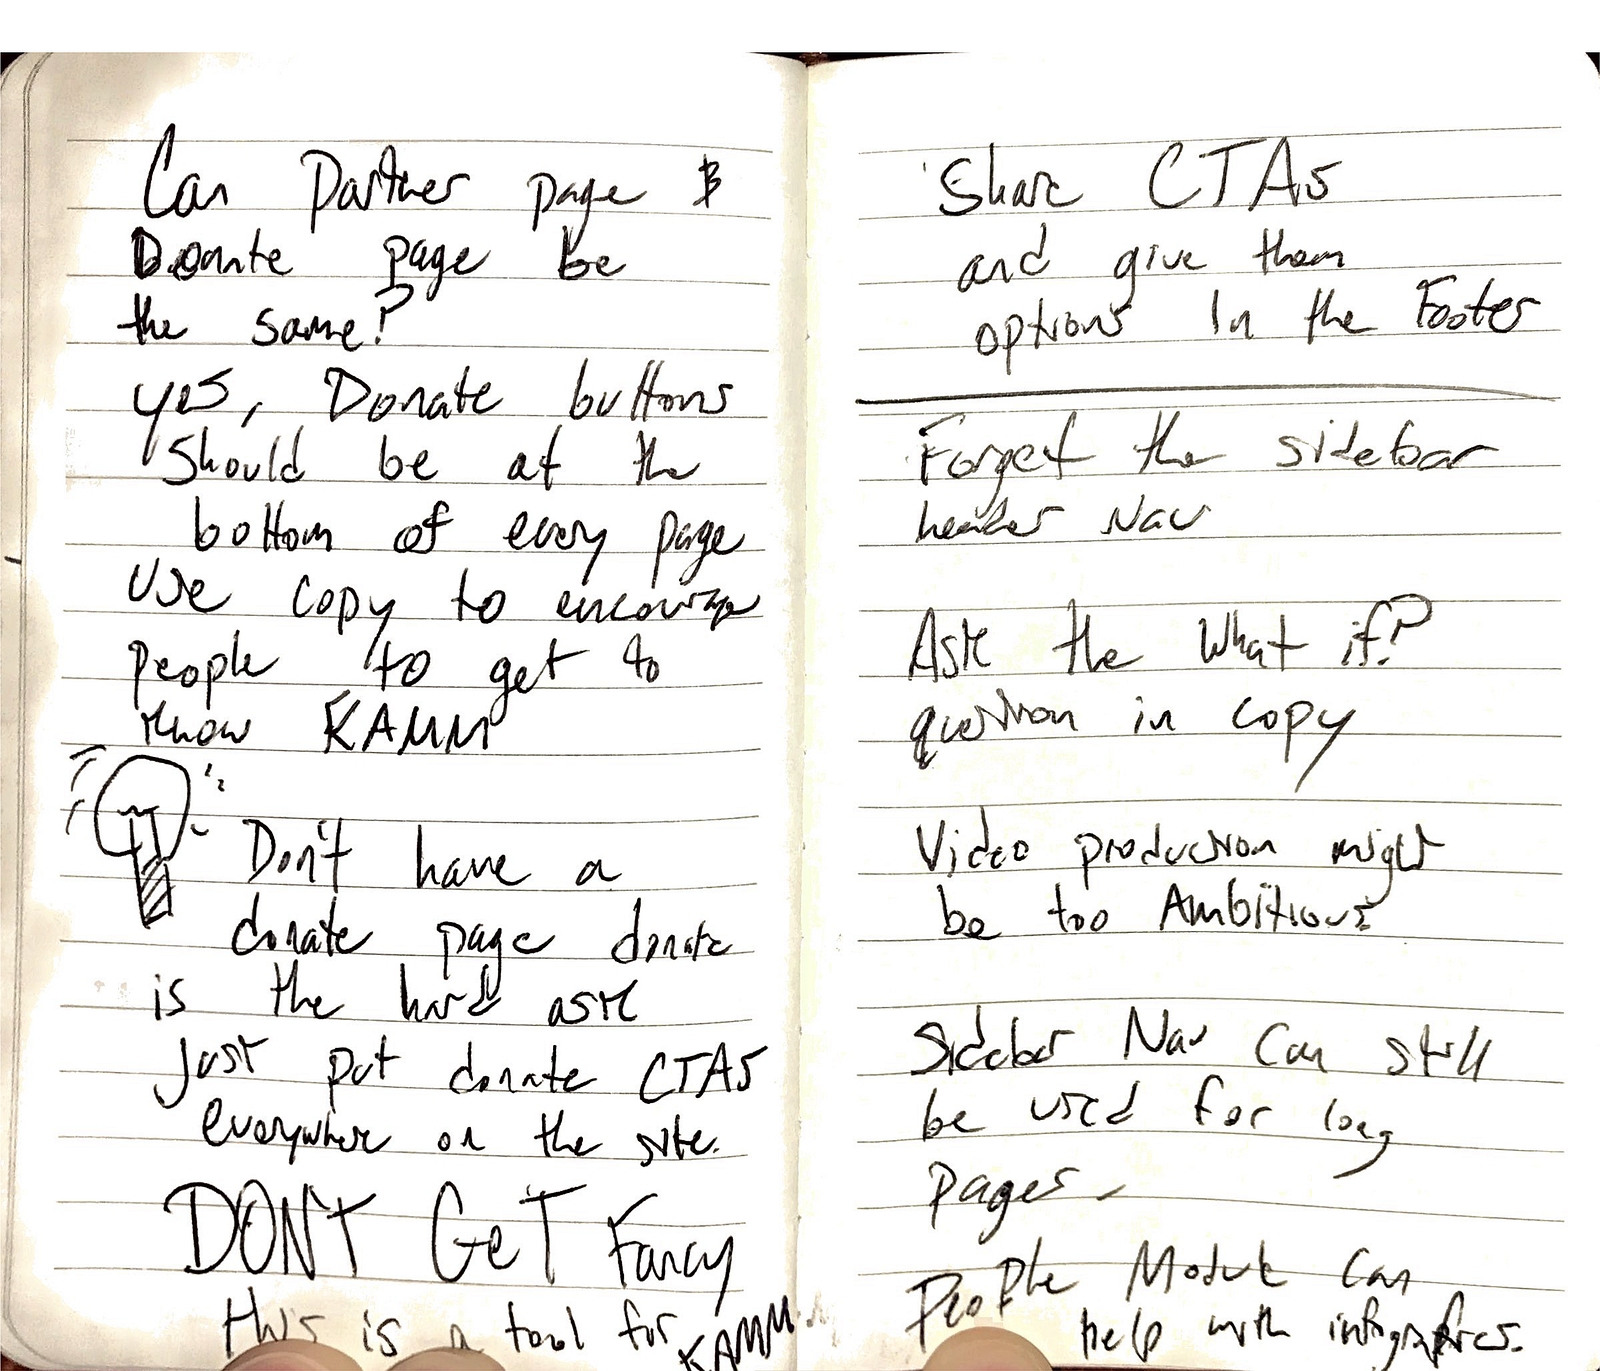 Can Partner page &
Donate page be
the same?
yes, Donate buttons
should be at the
bottom of every page
Use copy to encourage
people to get to
know KAMM
Don't have a
donate page donate
is the hard ask
Just put donate CTAs
everywhere on the site.
DON'T GeT Fancy
this is a tool for KAMM
Share CTAs
and give them
options In the Footer
Forget the sidebar
header Nav
Ask the What if?
question in copy
Video production might
be too Ambitious
Sidebar Nav Can still
be used for long
pages.
People Module Can
help with infographics.